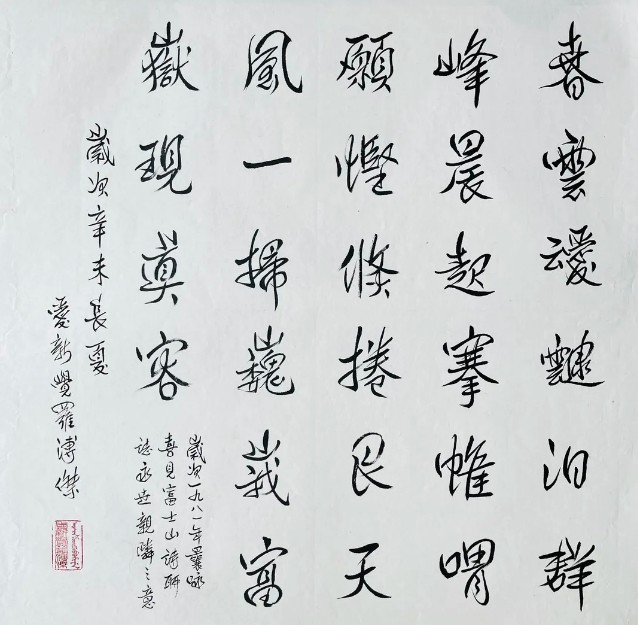 春雲靉靆泊群
峰晨起搴帷喟
願慳倏捲艮天
風一掃巍峩富
嶽現真容
歲次一九八一年曩咏
喜見富士山詩聊
誌永世親隣之意
歲次辛未長夏
愛新覺羅溥傑